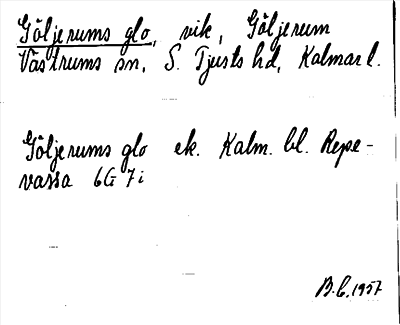 Göljerums glo, vik, Göljerum
Västrums sn, S. Tjusts hd, Kalmar l.
Göljerums glo ek. Kalm. bl. Repe-
vassa 6G 7i
B.C. 1957